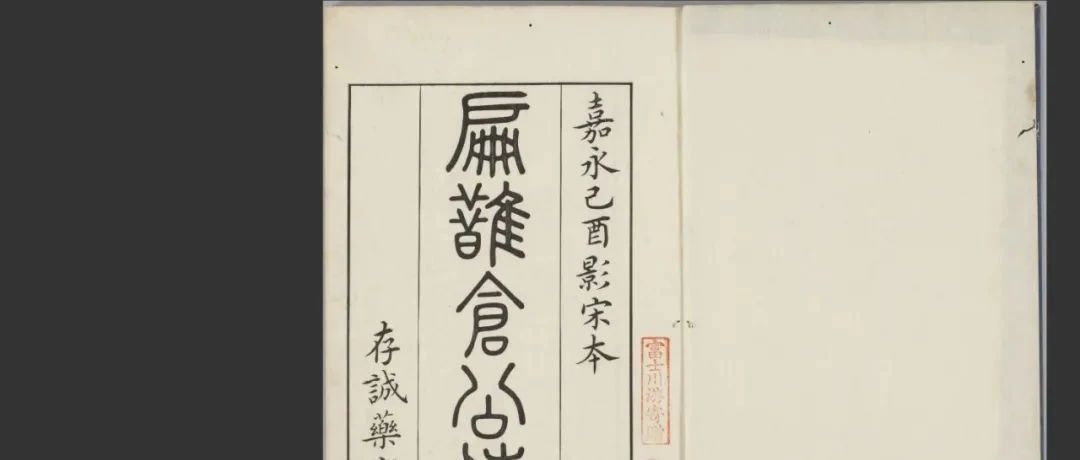 嘉永己酉影宋本
扁鵲倉公
存誠藥
富士川游寄贈